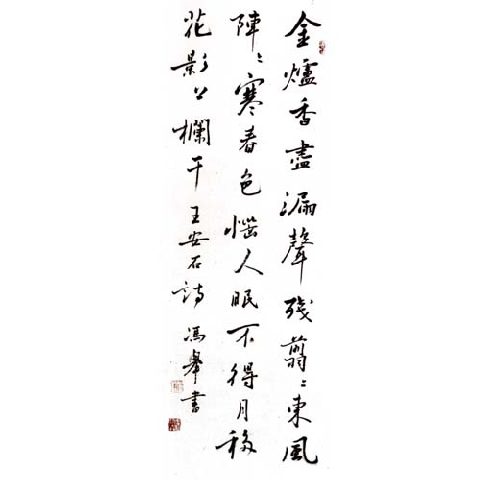 金爐香盡漏聲殘翦〻東風
陣〻寒春色惱人眠不得月移
花影上欄干 王安石詩 馮舉書